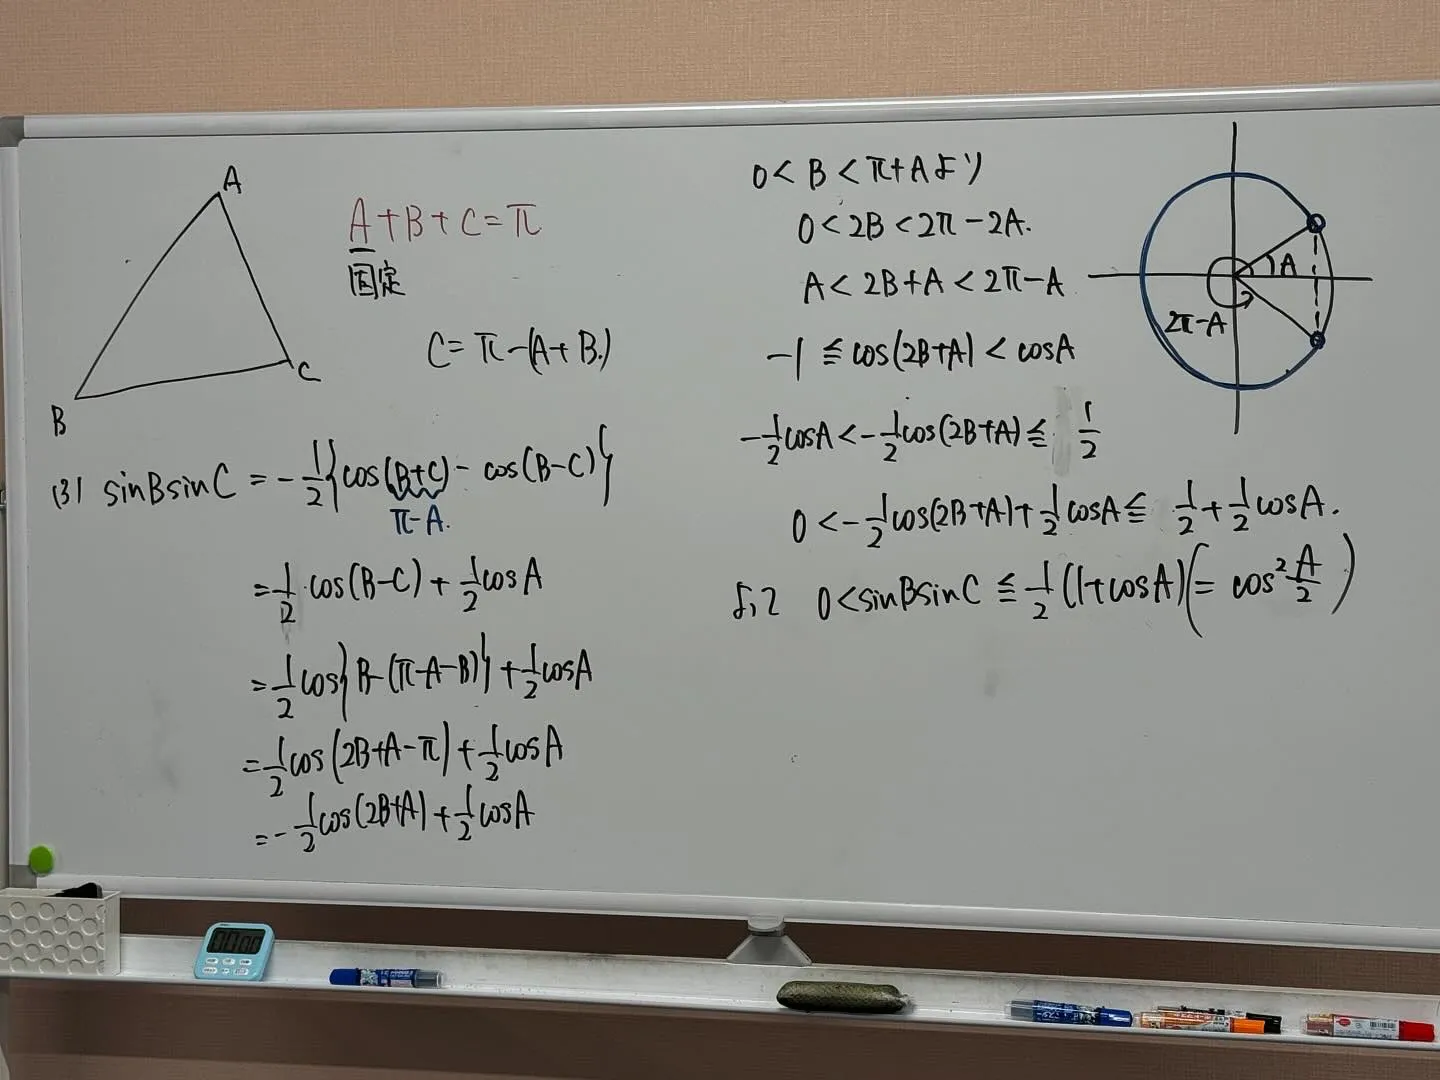 A
B
C
A+B+C=π
固定
C=π-(A+B.)
(3) sinBsinC = -1/2{cos(B+C) - cos(B-C)}
π-A.
=1/2 cos(B-C) + 1/2 cosA
=1/2 cos{B-(π-A-B)} + 1/2 cosA
=1/2 cos(2B+A-π) + 1/2 cosA
=-1/2 cos(2B+A) + 1/2 cosA
0<B<π+Aより
0<2B<2π-2A.
A<2B+A<2π-A
-1≦cos(2B+A)<cosA
-1/2 cosA<-1/2 cos(2B+A)≦ 1/2
0<-1/2 cos(2B+A)+1/2 cosA≦ 1/2+1/2 cosA.
よって 0<sinBsinC≦1/2(1+cosA)(= cos² A/2)
A
2π-A
00:00